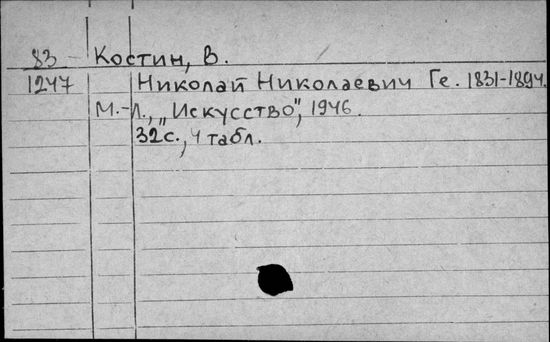 83 Костин, В.
1247 Николай Николаевич Ге. 1831-1894.
М.-Л., „Искусство", 1946.
32с., 4 табл.